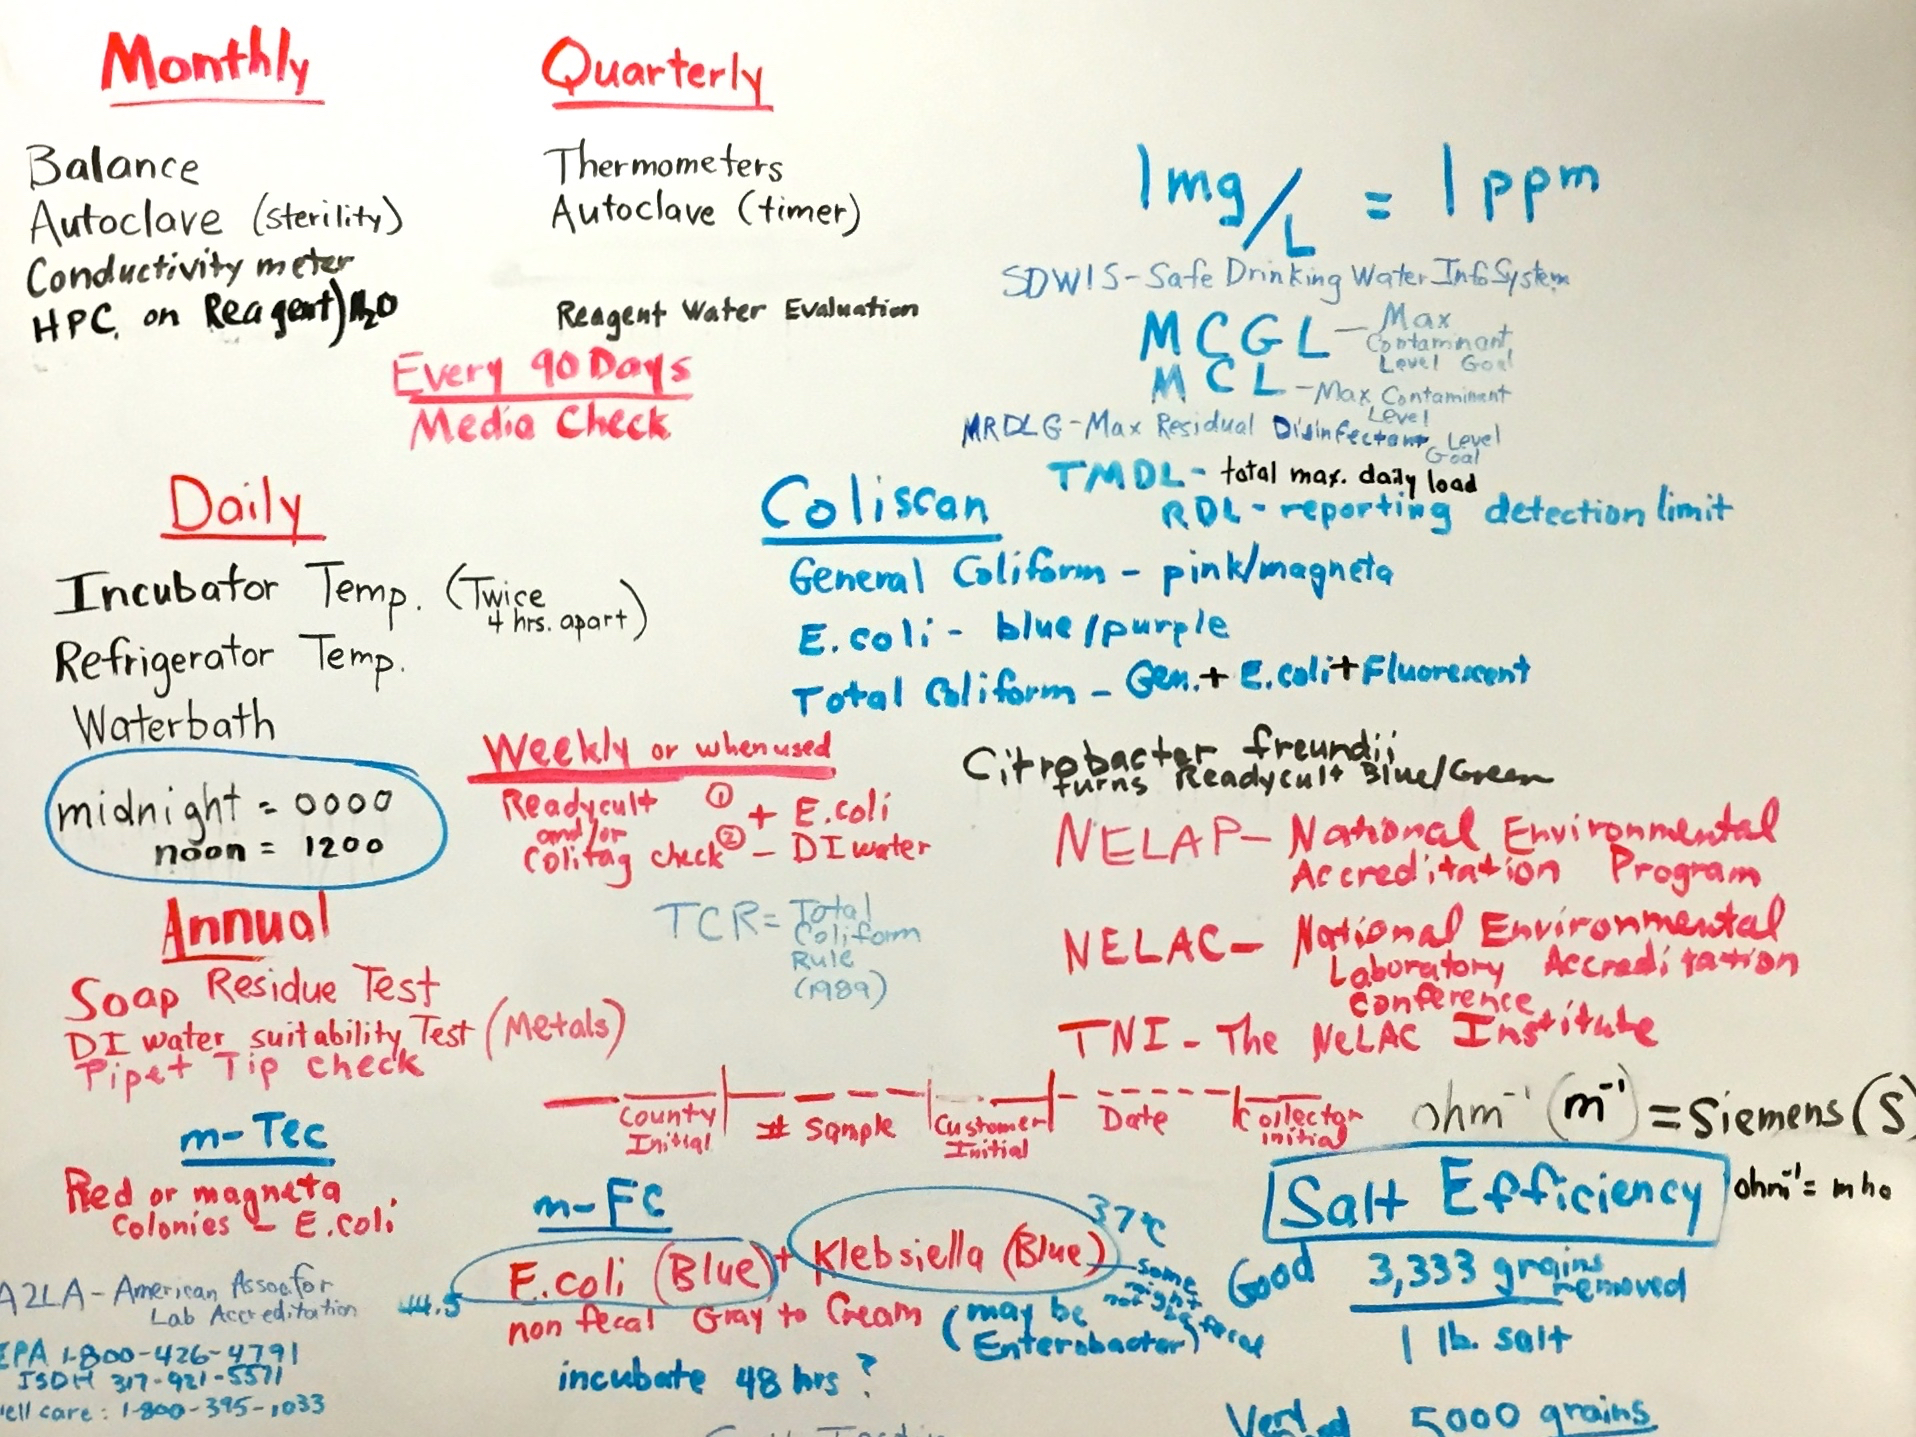 Monthly
Balance
Autoclave (sterility)
Conductivity meter
HPC. on Reagent) H2O
Quarterly
Thermometers
Autoclave (timer)
Reagent Water Evaluation
Every 90 Days
Media Check
1 mg/L = 1 ppm
SDWIS - Safe Drinking Water Info System
MCGL - Max
Contaminant
Level Goal
MCL - Max Contaminent
Level
MRDLG - Max Residual Disinfectant Level
Goal
TMDL - total max. daily load
RDL - reporting detection limit
Daily
Incubator Temp. (Twice
4 hrs. apart)
Refrigerator Temp.
Waterbath
midnight = 0000
noon = 1200
Coliscan
General Coliform - pink/magneta
E.coli - blue/purple
Total Coliform - Gen. + E.coli + Fluorescent
Weekly or when used
Readycult ① + E.coli
and/or
Colitag check ② - DI water
Citrobacter freundii
turns Readycult Blue/Green
TCR = Total
Coliform
Rule
(1989)
NELAP - National Environmental
Accreditation Program
NELAC - National Environmental
Laboratory Accreditation
Conference
TNI - The NeLAC Institute
Annual
Soap Residue Test
DI water suitability Test (Metals)
Pipet Tip check
County
Initial
# Sample
Customer
Initial
Date
Collector
initial
ohm⁻¹ (m⁻¹) = Siemens (S
ohm⁻¹ = mho
m-Tec
Red or magneta
colonies - E.coli
m-FC
E.coli (Blue) + Klebsiella (Blue)
37°C
some
might
not
be fecal
44.5
non fecal Gray to Cream (may be
Enterobacter)
incubate 48 hrs ?
Salt Efficiency
Good 3,333 grains
removed
1 lb. salt
Very 5000 grains
A2LA - American Assoc for
Lab Accreditation
EPA 1-800-426-4791
ISDH 317-921-5571
ell care: 1-800-395-1033